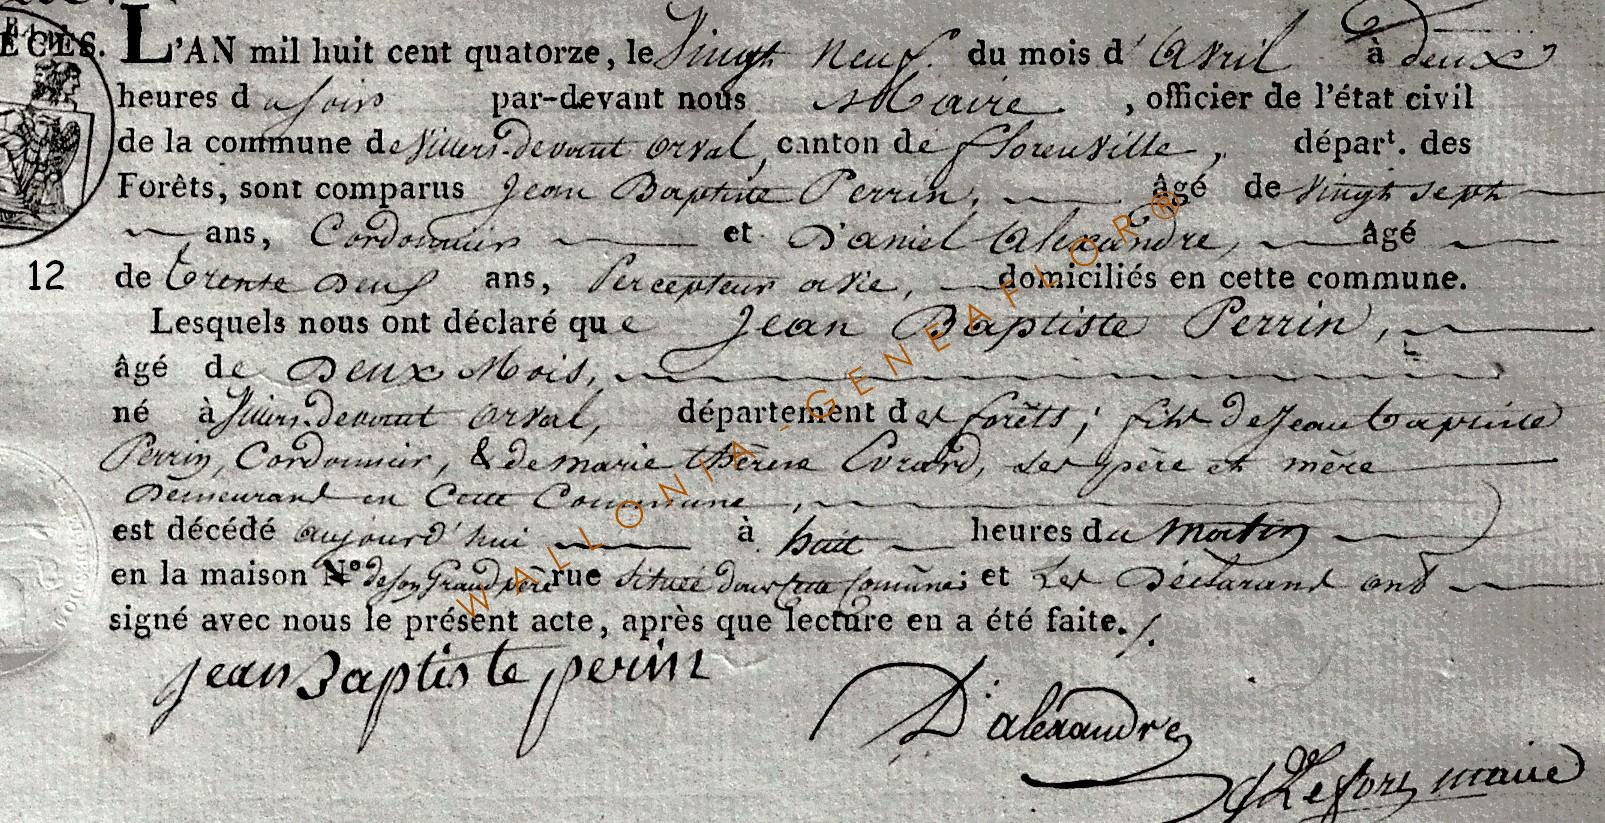 ÉCÈS. L'AN mil huit cent quatorze, le Vingt neuf du mois d'avril à deux
heures du soir par-devant nous Maire, officier de l'état civil
de la commune de Villers-devant orval, canton de florenville, départ. des
Forêts, sont comparus Jean Baptiste Perrin, âgé de vingt sept
ans, Cordonnier et Daniel Alexandre, âgé
12 de trente Deux ans, Percepteur, domiciliés en cette commune.
Lesquels nous ont déclaré que Jean Baptiste Perrin,
âgé de Deux Mois,
né à Villers-devant orval, département des forêts; fils de Jean baptiste
Perrin, Cordonnier, & de marie thérèse Evrard, ses père et mère
Demeurant en Cette Commune,
est décédé aujourd'hui à huit heures du Matin
en la maison N.º de son Grand père rue située dans cette Comune; et Les Déclarant ont
signé avec nous le présent acte, après que lecture en a été faite./.
Jean Baptiste perin
D: alexandre
Lefort maire
WALLONIA - GENEAFLOR®